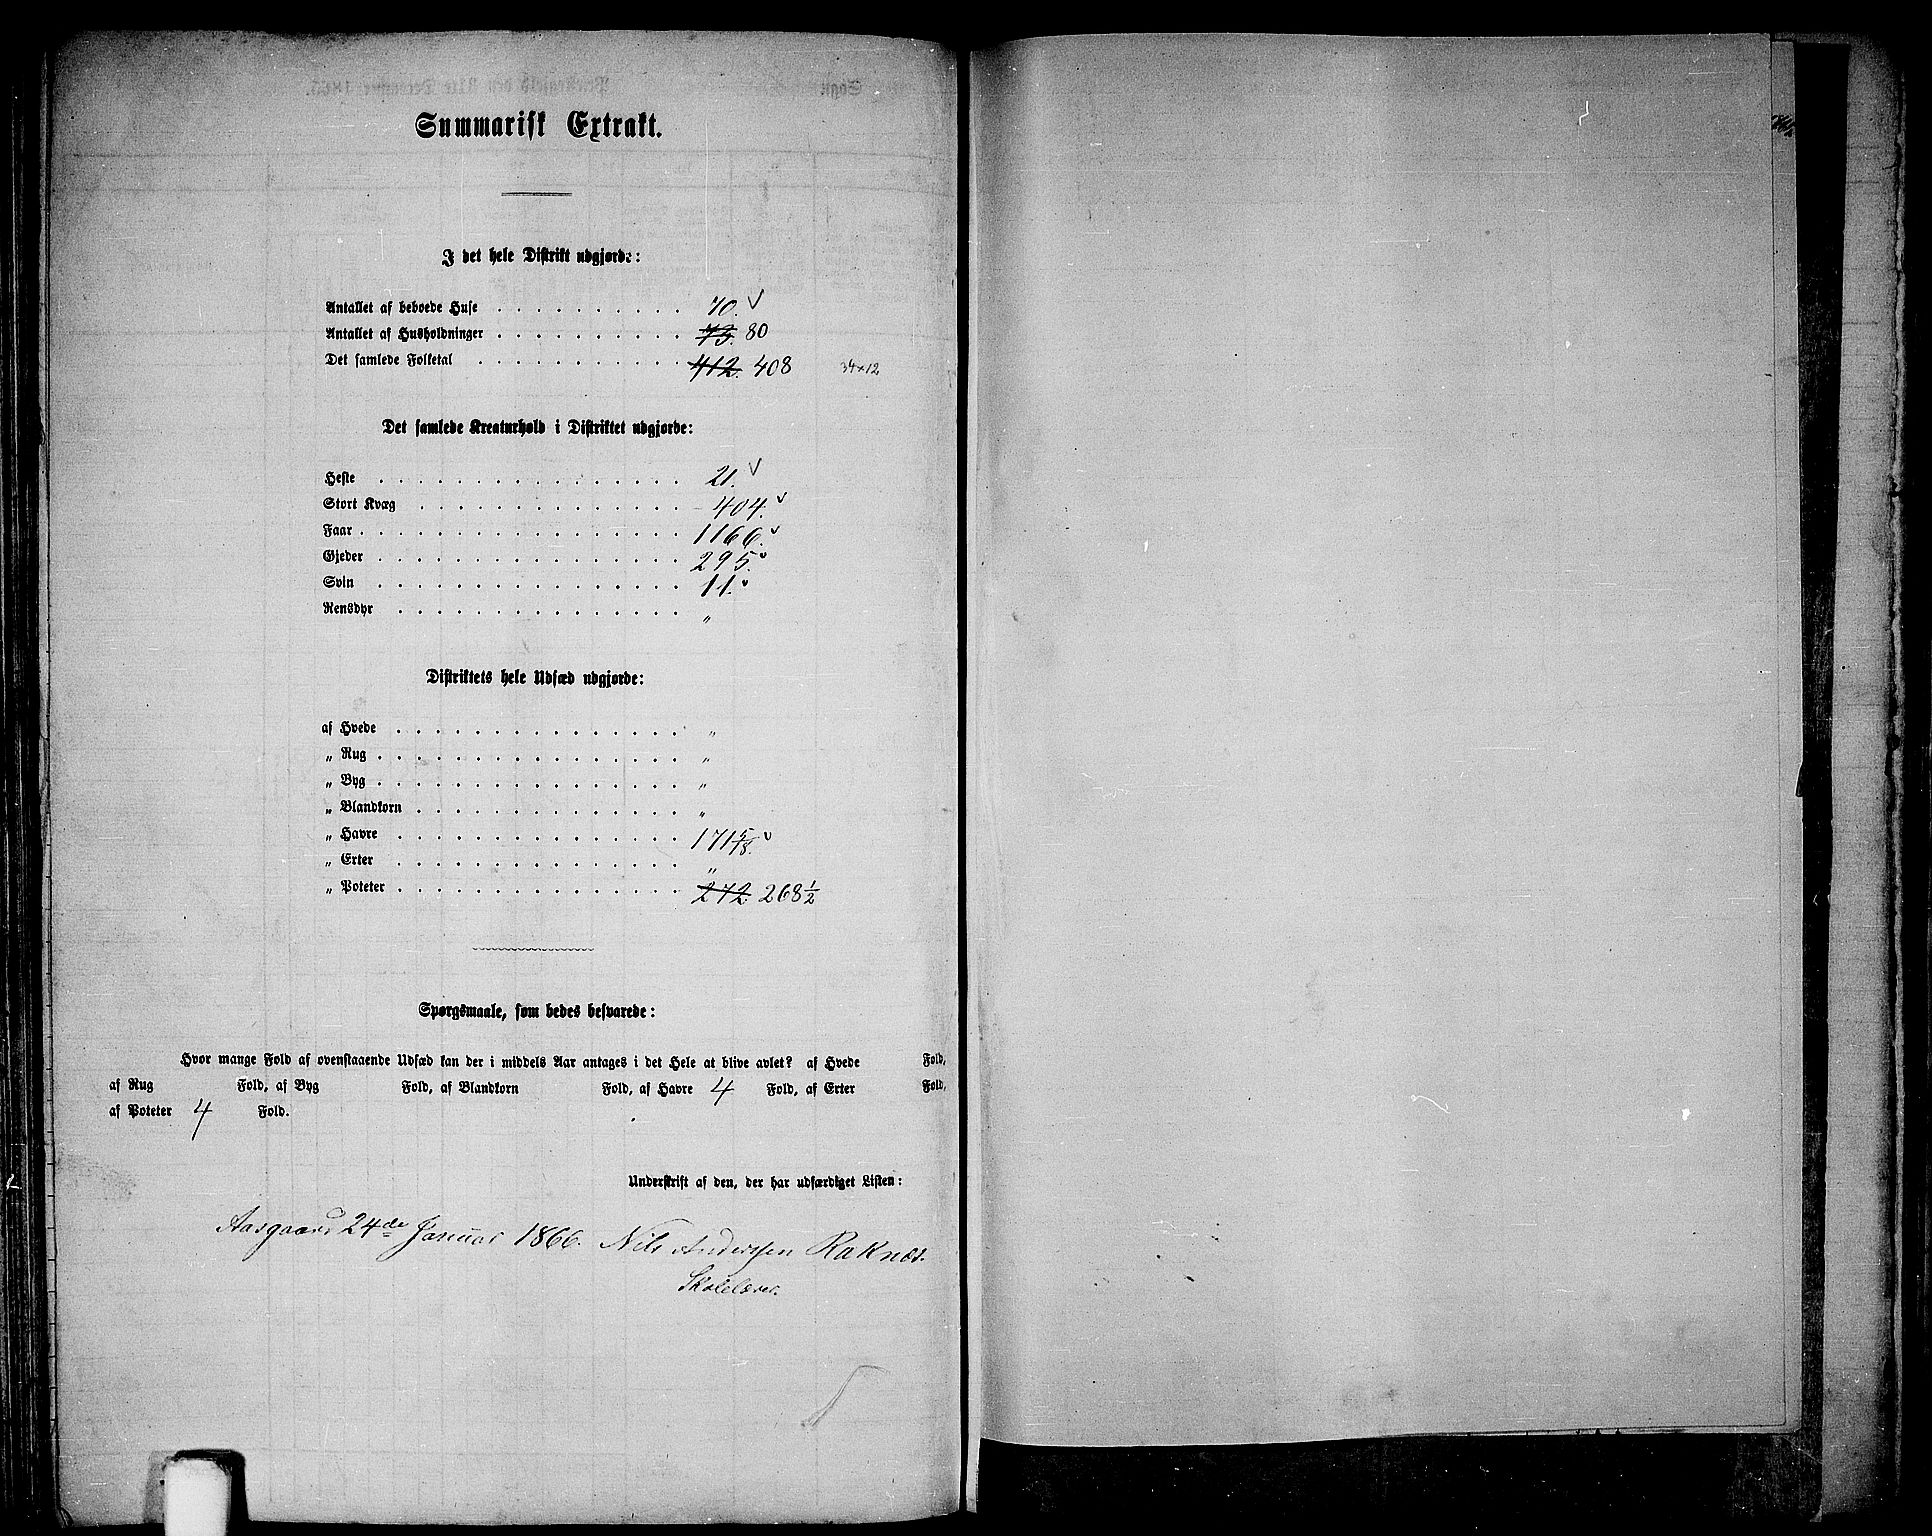 Summarisk Extrakt.
I det hele Distrikt udgjorde:
Antallet af beboede Huse . . . . . . . . . . 70. ✓
Antallet af Husholdninger . . . . . . . . . . 73. 80
Det samlede Folketal . . . . . . . . . . . 412. 408 34+12
Det samlede Kreaturhold i Distriktet udgjorde:
Heste . . . . . . . . . . . . . . . . 21. ✓
Stort Kvæg . . . . . . . . . . . . . . 404. ✓
Faar . . . . . . . . . . . . . . . . . 1166. ✓
Gjeder . . . . . . . . . . . . . . . . 295. ✓
Svin . . . . . . . . . . . . . . . . 11. ✓
Rensdyr . . . . . . . . . . . . . . . „
Distriktets hele Udsæd udgjorde:
af Hvede . . . . . . . . . . . . . . . „
„ Rug . . . . . . . . . . . . . . . . „
„ Byg . . . . . . . . . . . . . . . . „
„ Blandkorn . . . . . . . . . . . . . . „
„ Havre . . . . . . . . . . . . . . . 171 5/18. ✓
„ Erter . . . . . . . . . . . . . . . „
„ Poteter . . . . . . . . . . . . . . . 272 268 1/2
Spørgsmaale, som bedes besvarede:
Hvor mange Fold af ovenstaaende Udsæd kan der i middels Aar antages i det Hele at blive avlet? af Hvede Fold,
af Rug Fold, af Byg Fold, af Blandkorn Fold, af Havre 4 Fold, af Erter Fold,
af Poteter 4 Fold.
Underskrift af den, der har udfærdiget Listen:
Aasgaard 24de Januar 1866. Nils Anderssen Raknæs.
Skolelærer.